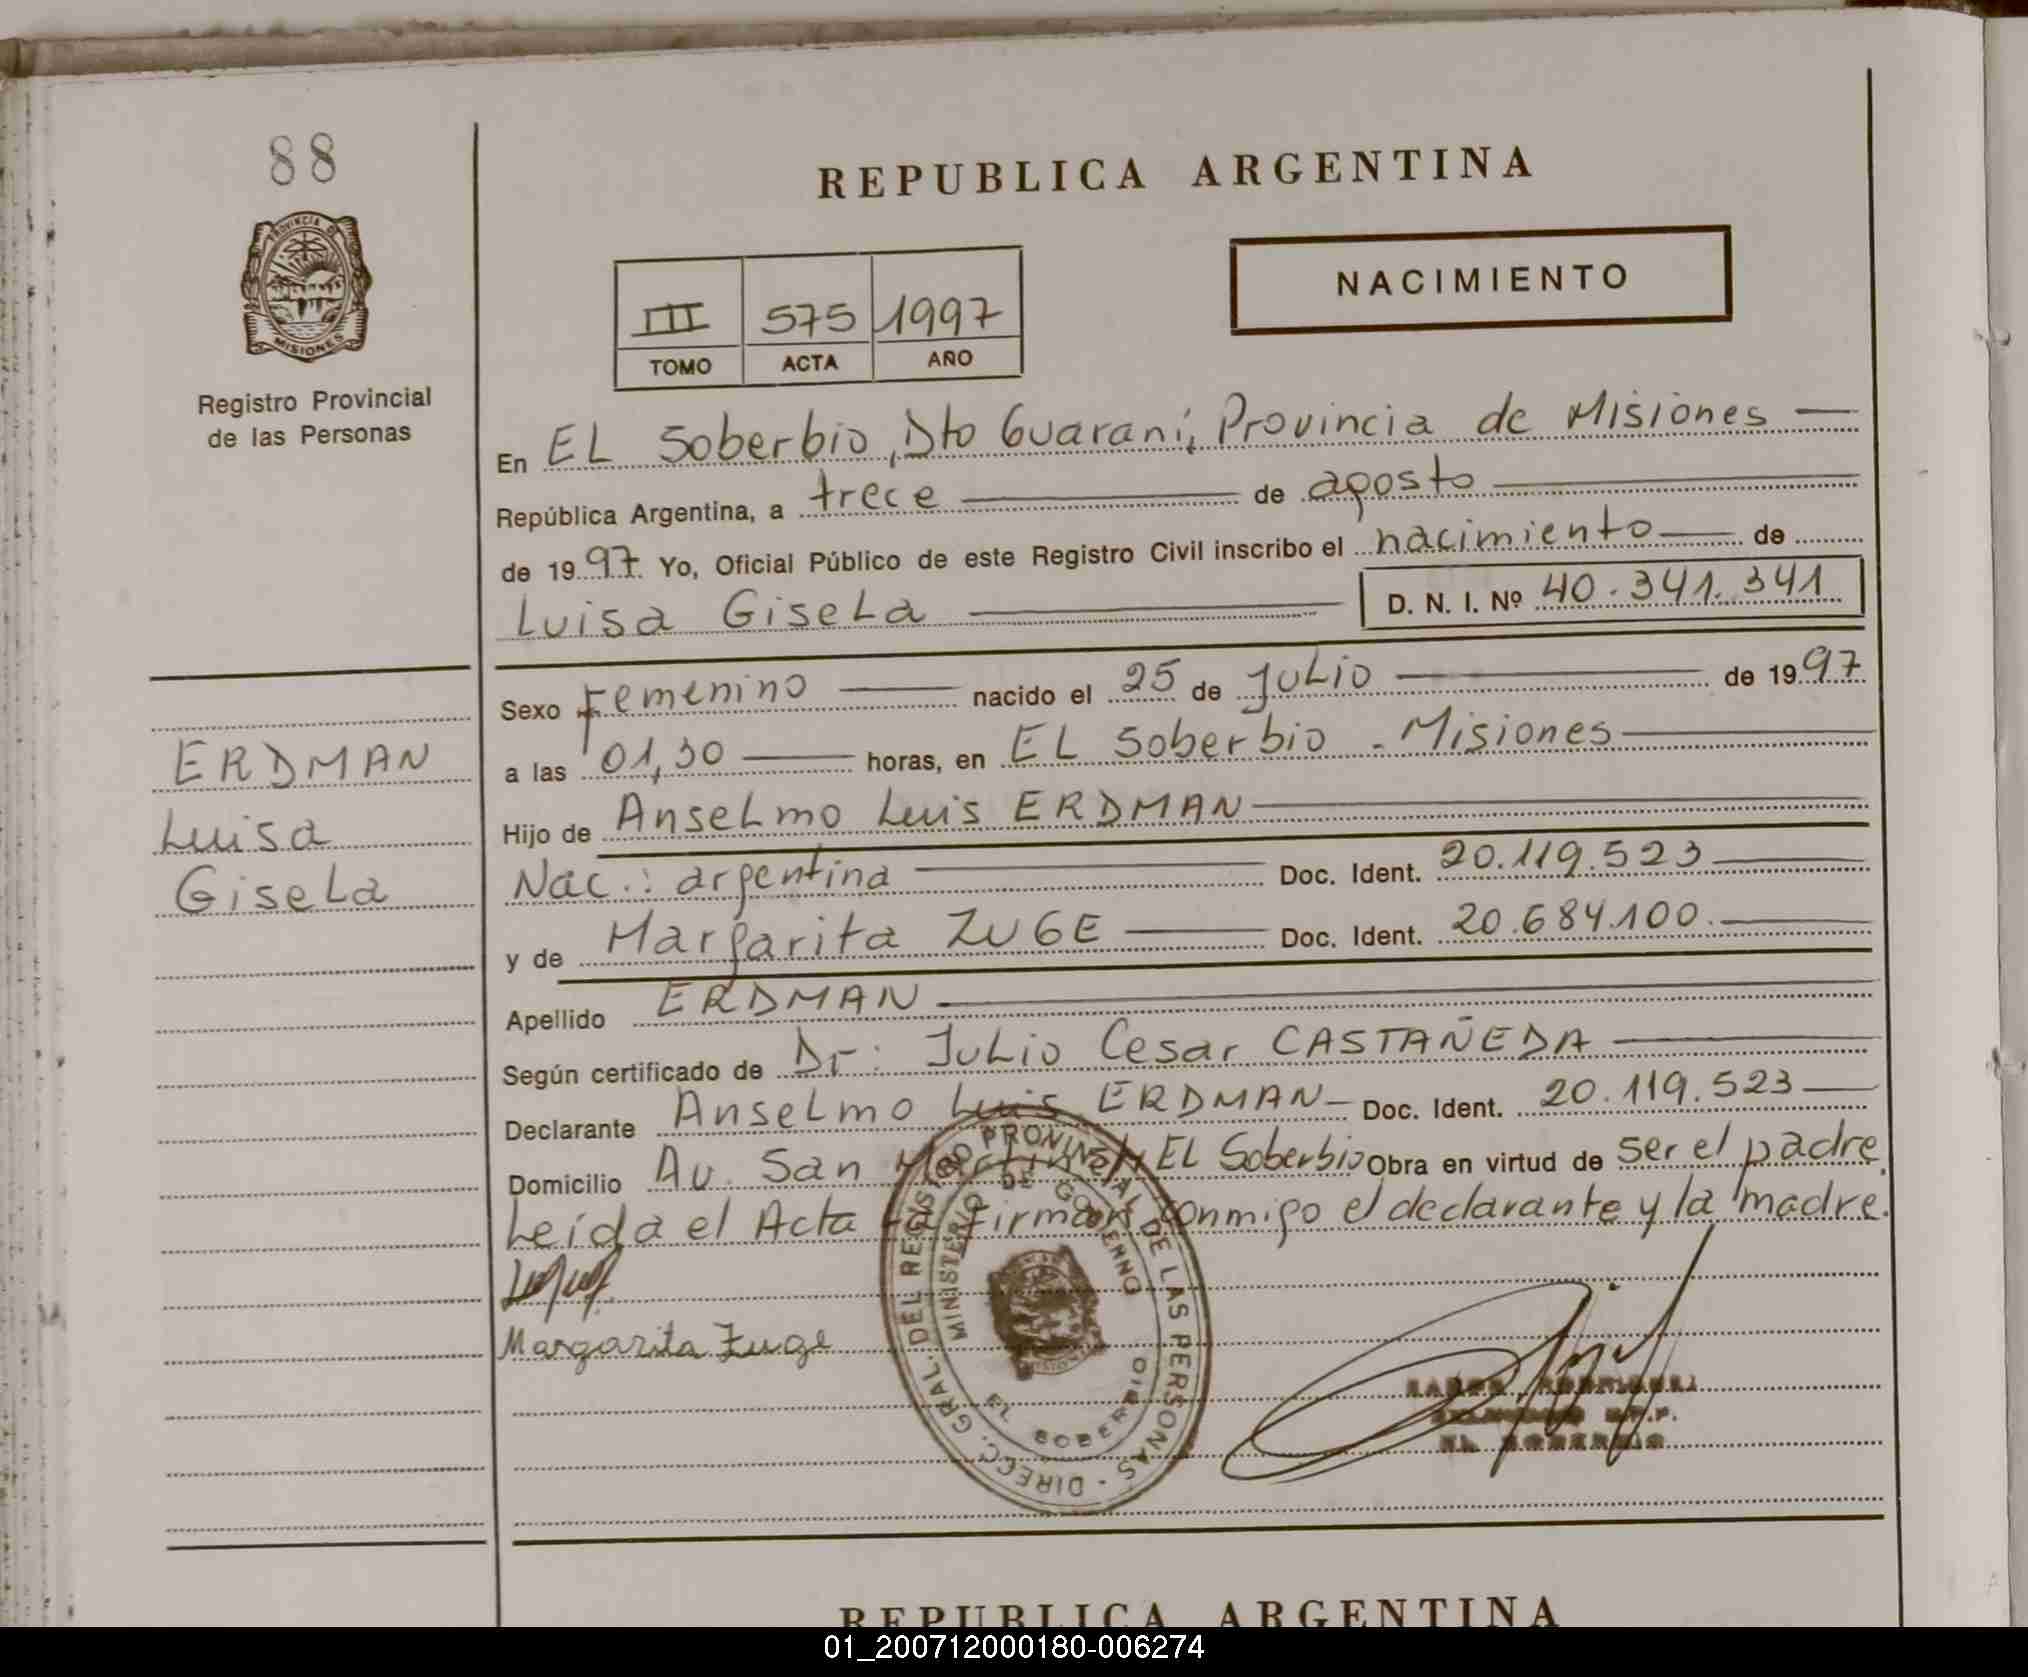 88
PROVINCIA DE
MISIONES
Registro Provincial
de las Personas
REPUBLICA ARGENTINA
III 575 1997
TOMO ACTA AÑO
NACIMIENTO
En EL Soberbio, Dto Guaraní, Provincia de Misiones
República Argentina, a trece de agosto
de 1997. Yo, Oficial Público de este Registro Civil inscribo el nacimiento de
Luisa Gisela D. N. I. Nº 40.341.341
Sexo Femenino nacido el 25 de Julio de 1997
a las 01,30 horas, en EL Soberbio - Misiones
Hijo de Anselmo Luis ERDMAN
Nac.: argentina Doc. Ident. 20.119.523
y de Margarita ZUGE Doc. Ident. 20.684.100.
Apellido ERDMAN
Según certificado de Dr: Julio Cesar CASTAÑEDA
Declarante Anselmo Luis ERDMAN Doc. Ident. 20.119.523
Domicilio Av. San Martin EL Soberbio Obra en virtud de ser el padre.
Leída el Acta la firman conmigo el declarante y la madre.
Margarita Zuge
ERDMAN
Luisa
Gisela
DIRECC. GRAL. DEL REGISTRO PROVINCIAL DE LAS PERSONAS -
MINISTERIO DE GOBIERNO
EL SOBERBIO
EL SOBERBIO
REPUBLICA ARGENTINA
01_200712000180-006274